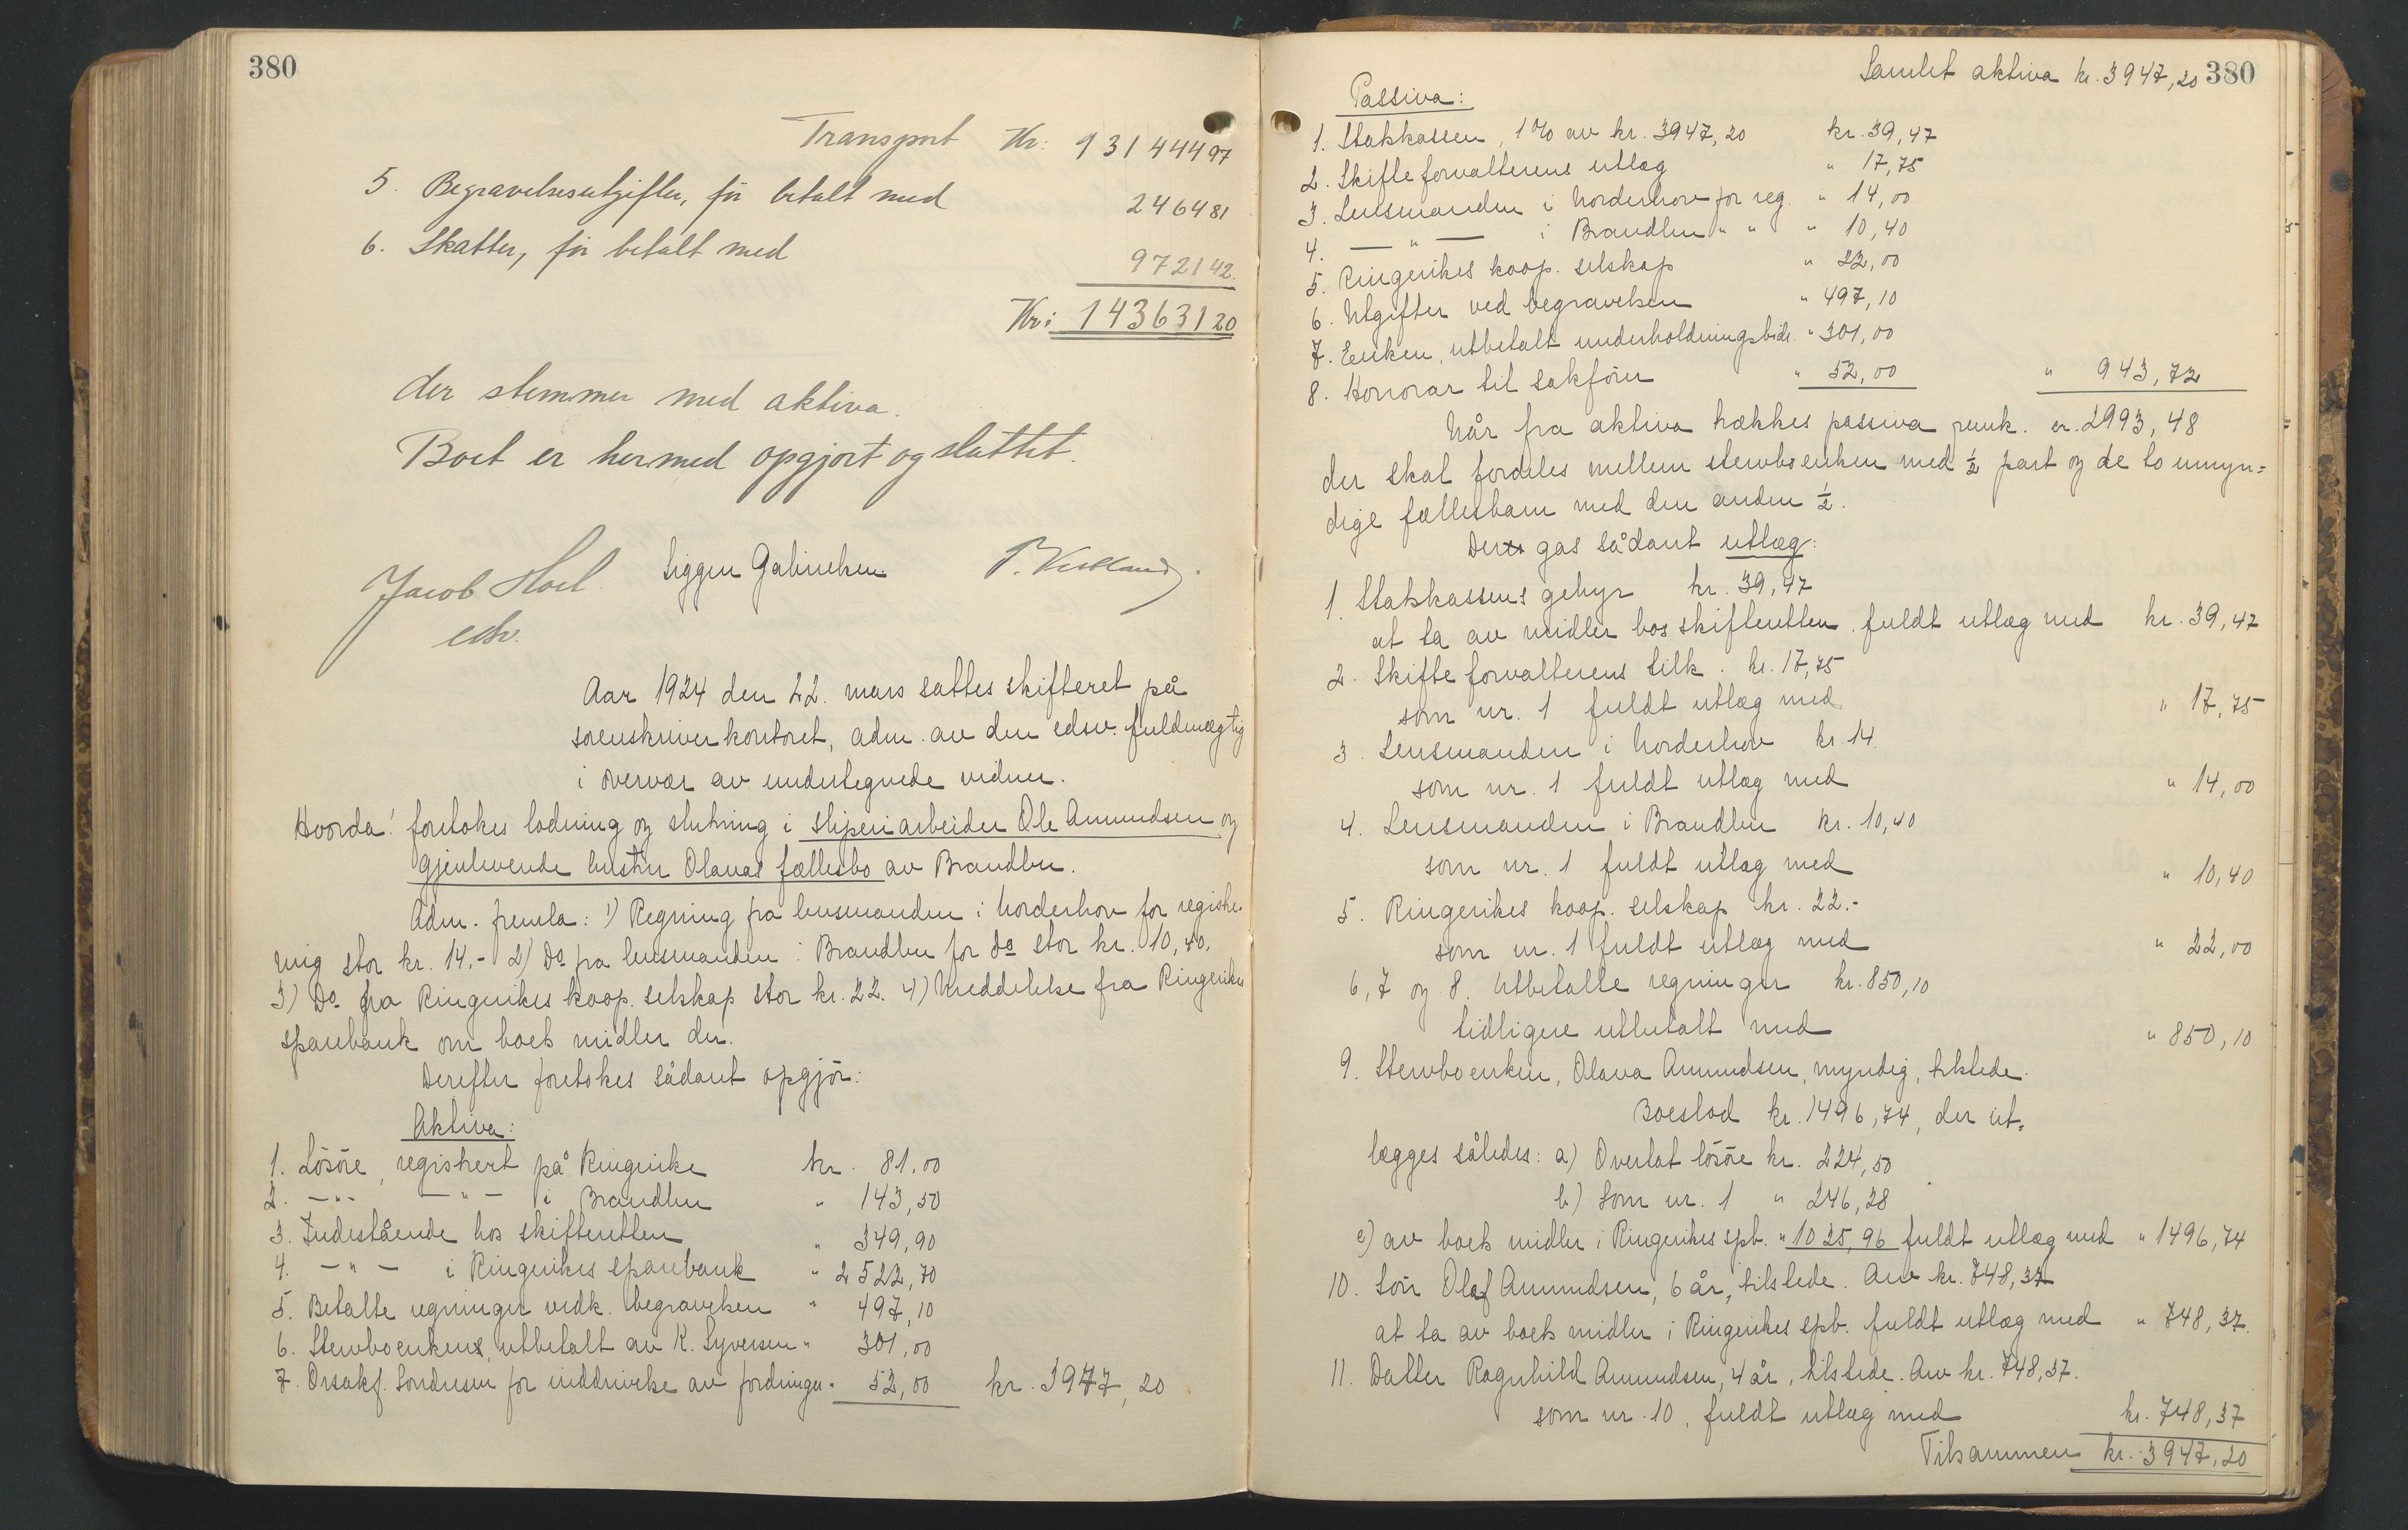 380
Transport Kr: 131444 97
5. Begravelsesutgifter, får betalt med 2464 81
6. Skatter, får betalt med 9721 42.
Kr: 143631 20
der stemmer med aktiva.
Boet er hermed opgjort og sluttet.
Jacob Hoel Siggen P.
edsv.
Aar 1924 den 22. mars sattes skifteret på
sorenskriverkontoret, adm. av den edsv. fuldmægtig
i overvær av undertegnede vidner.
Hvorda! foretokes lodning og slutning i sliperiarbeider Ole Amundsen og
gjenlevende hustru Olavas fællesbo av Brandbu.
Adm. fremla: 1) Regning fra lensmanden i Norderhov for registre-
ring stor kr. 14.- 2) Do fra lensmanden i Brandbu for do stor kr. 10,40.
3) Do fra Ringerikes koop. selskap stor kr. 22. 4) Meddelelse fra Ringerikes
sparebank om boets midler der.
Derefter foretokes sådant opgjør:
Aktiva:
1. Løsøre, registrert på Ringerike kr. 81,00
2. -"- -"- i Brandbu " 143,50
3. Indestående hos skifteretten " 349,90
4. -"- i Ringerikes sparebank " 2522,70
5. Betalte regninger vedk. begravelsen " 497,10
6. Stervboenken, utbetalt av K. Syversen " 301,00
7. Orsakf. Sondresen for inddrivelse av fordringer " 52,00 kr. 3947,20
Samlet aktiva kr. 3947,20 380
Passiva:
1. Statskassen, 1% av kr. 3947,20 kr. 39,47
2. Skifteforvalterens utlæg " 17,75
3. Lensmanden i Norderhov for reg. " 14,00
4. -"- i Brandbu " " " 10,40
5. Ringerikes koop. selskap " 22,00
6. Utgifter ved begravelsen " 497,10
7. Enken, utbetalt underholdningsbidr. " 301,00
8. Honorar til sakfører " 52,00 " 943,72
Når fra aktiva trækkes passiva fremk. er. 2993,48
der skal fordeles mellem stervboenken med ½ part og de to umyn=
dige fællesbarn med den anden ½.
Der gas sådant utlæg:
1. Statskassens gebyr kr. 39,47
at ta av midler hos skifteretten. fuldt utlæg med kr. 39,47
2. Skifteforvalterens tilk. kr. 17,75
som nr. 1 fuldt utlæg med " 17,75
3. Lensmanden i Norderhov kr. 14.
som nr. 1 fuldt utlæg med " 14,00
4. Lensmanden i Brandbu kr. 10,40
som nr. 1 fuldt utlæg med " 10,40
5. Ringerikes koop. selskap kr. 22.-
som nr. 1 fuldt utlæg med " 22,00
6, 7 og 8. Utbetalte regninger kr. 850,10
tidligere utbetalt med " 850,10
9. Stervboenken, Olava Amundsen, myndig, tilstede.
Boeslod kr. 1496,74, der ut=
lægges således: a) Overtat løsøre kr. 224,50
b) Som nr. 1 " 246,28
c) av boets midler i Ringerikes spb. " 1025,96 fuldt utlæg med " 1496,74
10. Søn Olaf Amundsen, 6 år, tilstede. Arv kr. 748,37
at ta av boets midler i Ringerikes spb. fuldt utlæg med " 748,37.
11. Datter Ragnhild Amundsen, 4 år, tilstede. Arv kr. 748,37.
som nr. 10, fuldt utlæg med kr. 748,37
Tilsammen kr. 3947,20